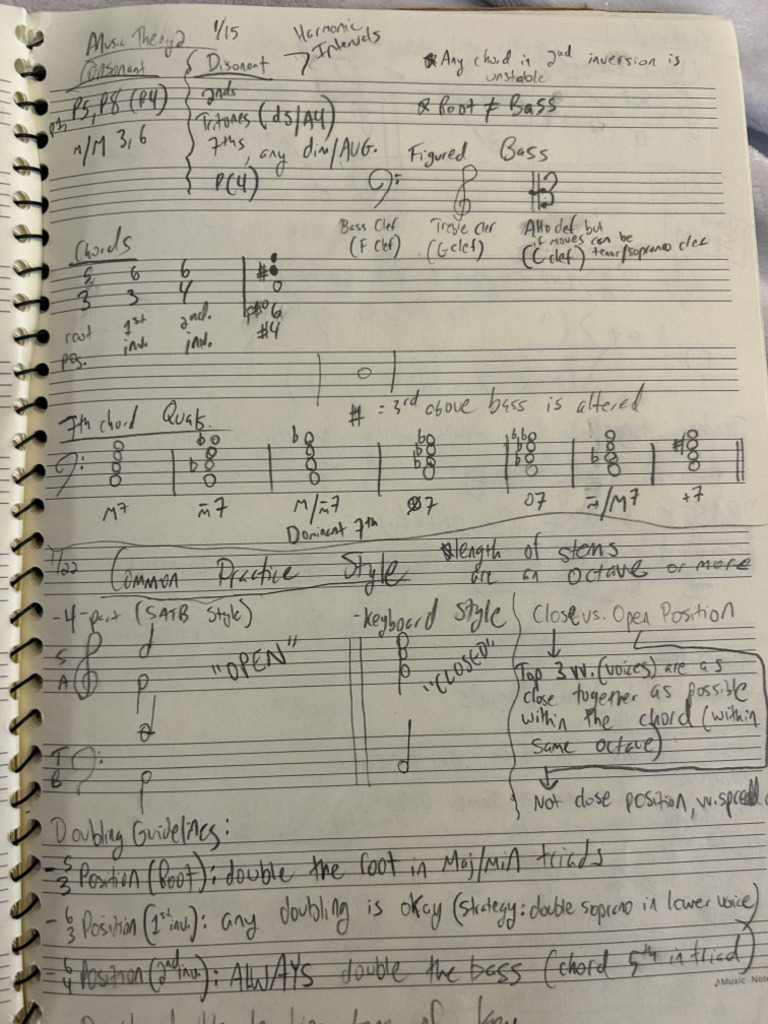 Music Theory 2 1/15
Harmonic
Intervals
Consonant
Disonant
P5, P8 (P4)
m/M 3, 6
2nds
Tritones (d5/A4)
7ths, any dim/AUG.
P(4)
*Any chord in 2nd inversion is
unstable
* Root ≠ Bass
Figured Bass
Bass Clef
(F Clef)
Treble Clef
(G clef)
Alto clef but
if moves can be
(C clef) tenor/soprano clef
Chords
5 6 6
3 3 4
root 1st 2nd.
pos. inv. inv.
#6
#4
# = 3rd above bass is altered
7th chord Quals.
M7 m7 M/m7 ø7 o7 m/M7 +7
Dominant 7th
1/22
Common Practice Style
*length of stems
are an octave or more
-4-part (SATB Style)
S
A
T
B
"OPEN"
-keyboard Style
"CLOSED"
Close vs. Open Position
Top 3 vv. (voices) are as
close together as possible
within the chord (within
same octave)
Not close position, vv. spread
Doubling Guidelines:
- 5/3 Position (Root): double the root in Maj/Min triads
- 6/3 Position (1st inv.): any doubling is okay (strategy: double soprano in lower voice)
- 6/4 Position (2nd inv.): ALWAYS double the bass (chord 5th in triad)
♪Music Not